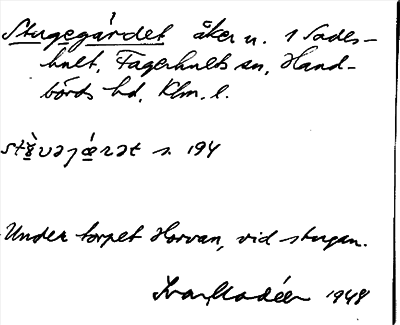 Stugegärdet åker u. 1 Lades-
hult, Fagerhults sn, Hand-
börds hd, Klm. l.
s. 194
Under torpet Horvan, vid stugan.
Ivar Modéer 1948